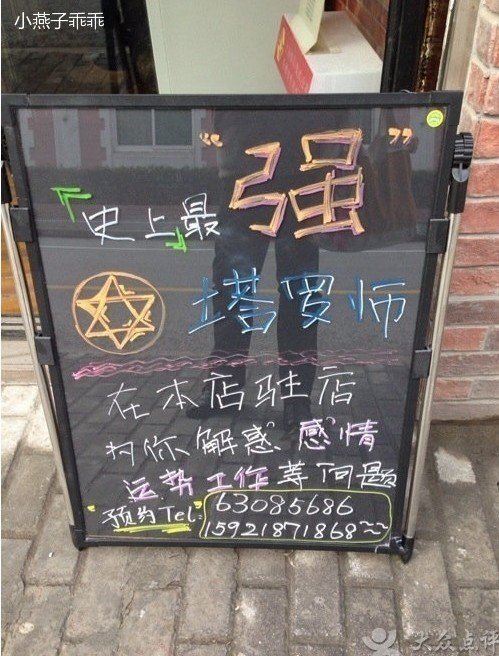 小燕子乖乖
史上最“强”
塔罗师
在本店驻店
为你解惑感情
运势工作等问题
预约Tel: 63085686
15921871868~~
大众点评